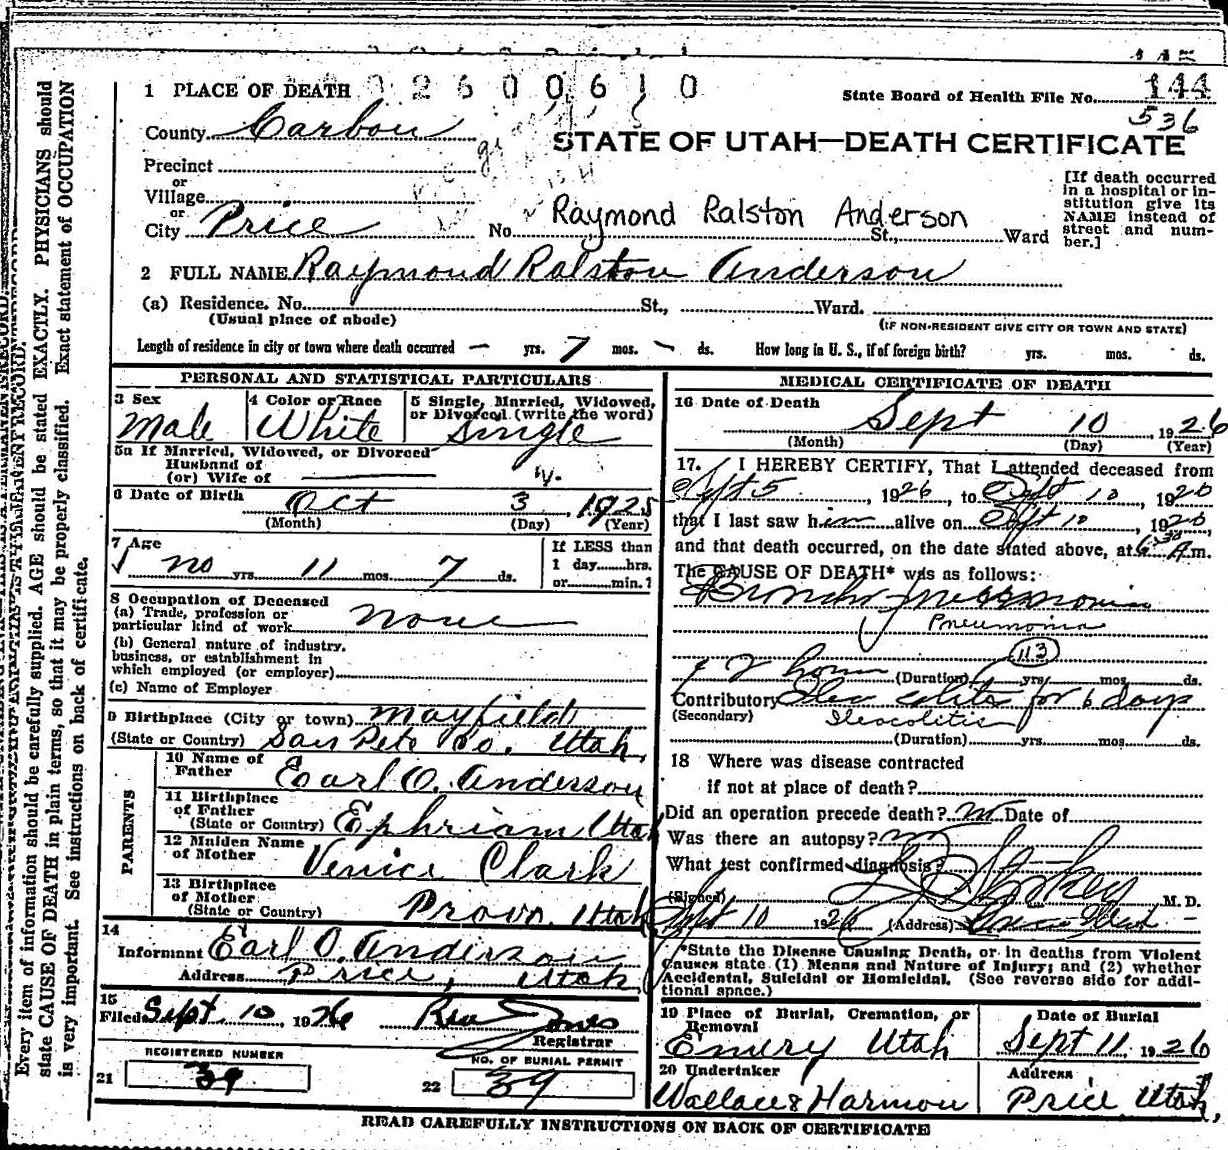 144
1 PLACE OF DEATH 0 2 6 0 0 6 1 0
State Board of Health File No. 144
536
County Carbon
STATE OF UTAH—DEATH CERTIFICATE
Precinct
or
Village
or
City Price No. Raymond Ralston Anderson St., Ward
[If death occurred
in a hospital or in-
stitution give its
NAME instead of
street and num-
ber.]
2 FULL NAME Raymond Ralston Anderson
(a) Residence. No. St., Ward.
(Usual place of abode) (IF NON-RESIDENT GIVE CITY OR TOWN AND STATE)
Length of residence in city or town where death occurred — yrs. 7 mos. – ds. How long in U. S., if of foreign birth? yrs. mos. ds.
PERSONAL AND STATISTICAL PARTICULARS
3 Sex Male
4 Color or Race White
5 Single, Married, Widowed,
or Divorced (write the word)
Single
5a If Married, Widowed, or Divorced
Husband of
(or) Wife of
6 Date of Birth Oct 3, 1925
(Month) (Day) (Year)
7 Age no yrs. 11 mos. 7 ds.
If LESS than
1 day hrs.
or min.?
8 Occupation of Deceased
(a) Trade, profession or
particular kind of work none
(b) General nature of industry,
business, or establishment in
which employed (or employer)
(c) Name of Employer
9 Birthplace (City or town) Mayfield
(State or Country) San Pete Co. Utah
PARENTS
10 Name of
Father Earl O. Anderson
11 Birthplace
of Father
(State or Country) Ephriam Utah
12 Maiden Name
of Mother Venice Clark
13 Birthplace
of Mother
(State or Country) Provo, Utah
14
Informant Earl O. Anderson
Address Price, Utah
15
Filed Sept. 10, 1926 Jones
Registrar
REGISTERED NUMBER
21 39
NO. OF BURIAL PERMIT
22 39
MEDICAL CERTIFICATE OF DEATH
16 Date of Death Sept 10, 1926
(Month) (Day) (Year)
17. I HEREBY CERTIFY, That I attended deceased from
Sept 5, 1926, to Sept 10, 1926
that I last saw him alive on Sept 10, 1926,
and that death occurred, on the date stated above, at 6:30 A.m.
The CAUSE OF DEATH* was as follows:
Broncho pneumonia
Pneumonia
113
72 hours (Duration) yrs. mos. ds.
Contributory Ileo colitis for 6 days
(Secondary) Ileocolitis
(Duration) yrs. mos. ds.
18 Where was disease contracted
if not at place of death?
Did an operation precede death? no Date of
Was there an autopsy? no
What test confirmed diagnosis?
(Signed) M. D.
Sept 10 1926 (Address) Price Utah
*State the Disease Causing Death, or in deaths from Violent
Causes state (1) Means and Nature of Injury; and (2) whether
Accidental, Suicidal or Homicidal. (See reverse side for addi-
tional space.)
19 Place of Burial, Cremation, or
Removal
Emery Utah
Date of Burial
Sept 11, 1926
20 Undertaker
Wallace & Harmon
Address
Price Utah,
READ CAREFULLY INSTRUCTIONS ON BACK OF CERTIFICATE
Every item of information should be carefully supplied. AGE should be stated EXACTLY. PHYSICIANS should
state CAUSE OF DEATH in plain terms, so that it may be properly classified. Exact statement of OCCUPATION
is very important. See instructions on back of certificate.